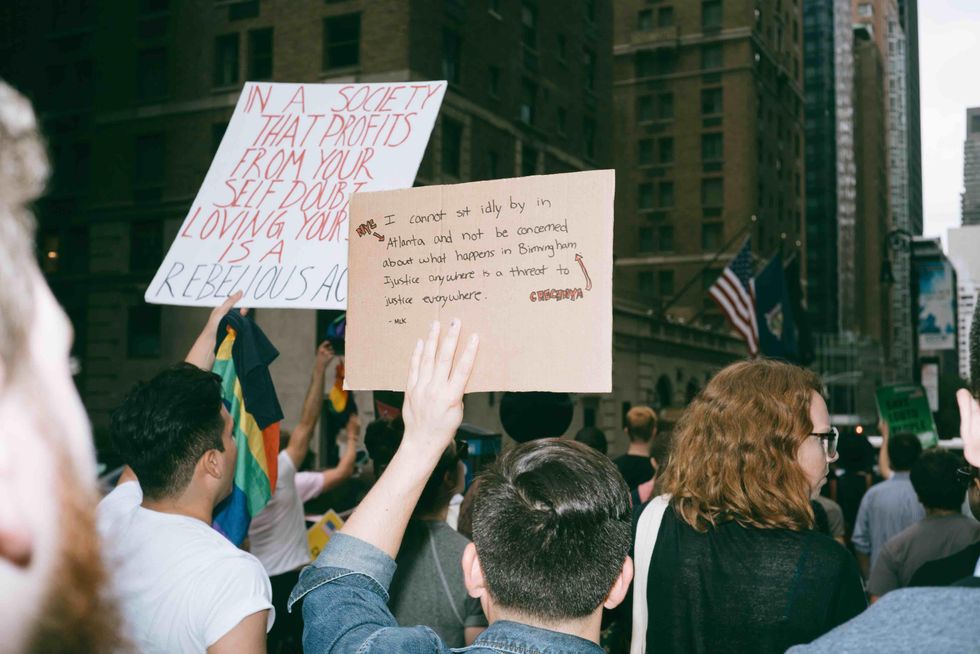 IN A SOCIETY
THAT PROFITS
FROM YOUR
SELF DOUBT
LOVING YOURS
IS A
REBELIOUS AC
NYC
I cannot sit idly by in
Atlanta and not be concerned
about what happens in Birmingham
Ijustice anywhere is a threat to
justice everywhere.
CHECHNYA
- MLK